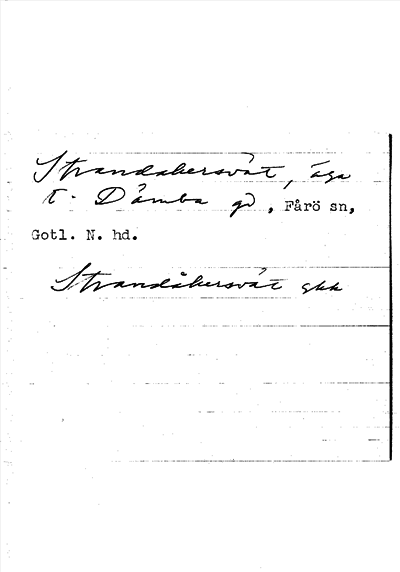 Strandakersvät, äga
t. Dämba gd, Fårö sn,
Gotl. N. hd.
Strandåkersvät gkk